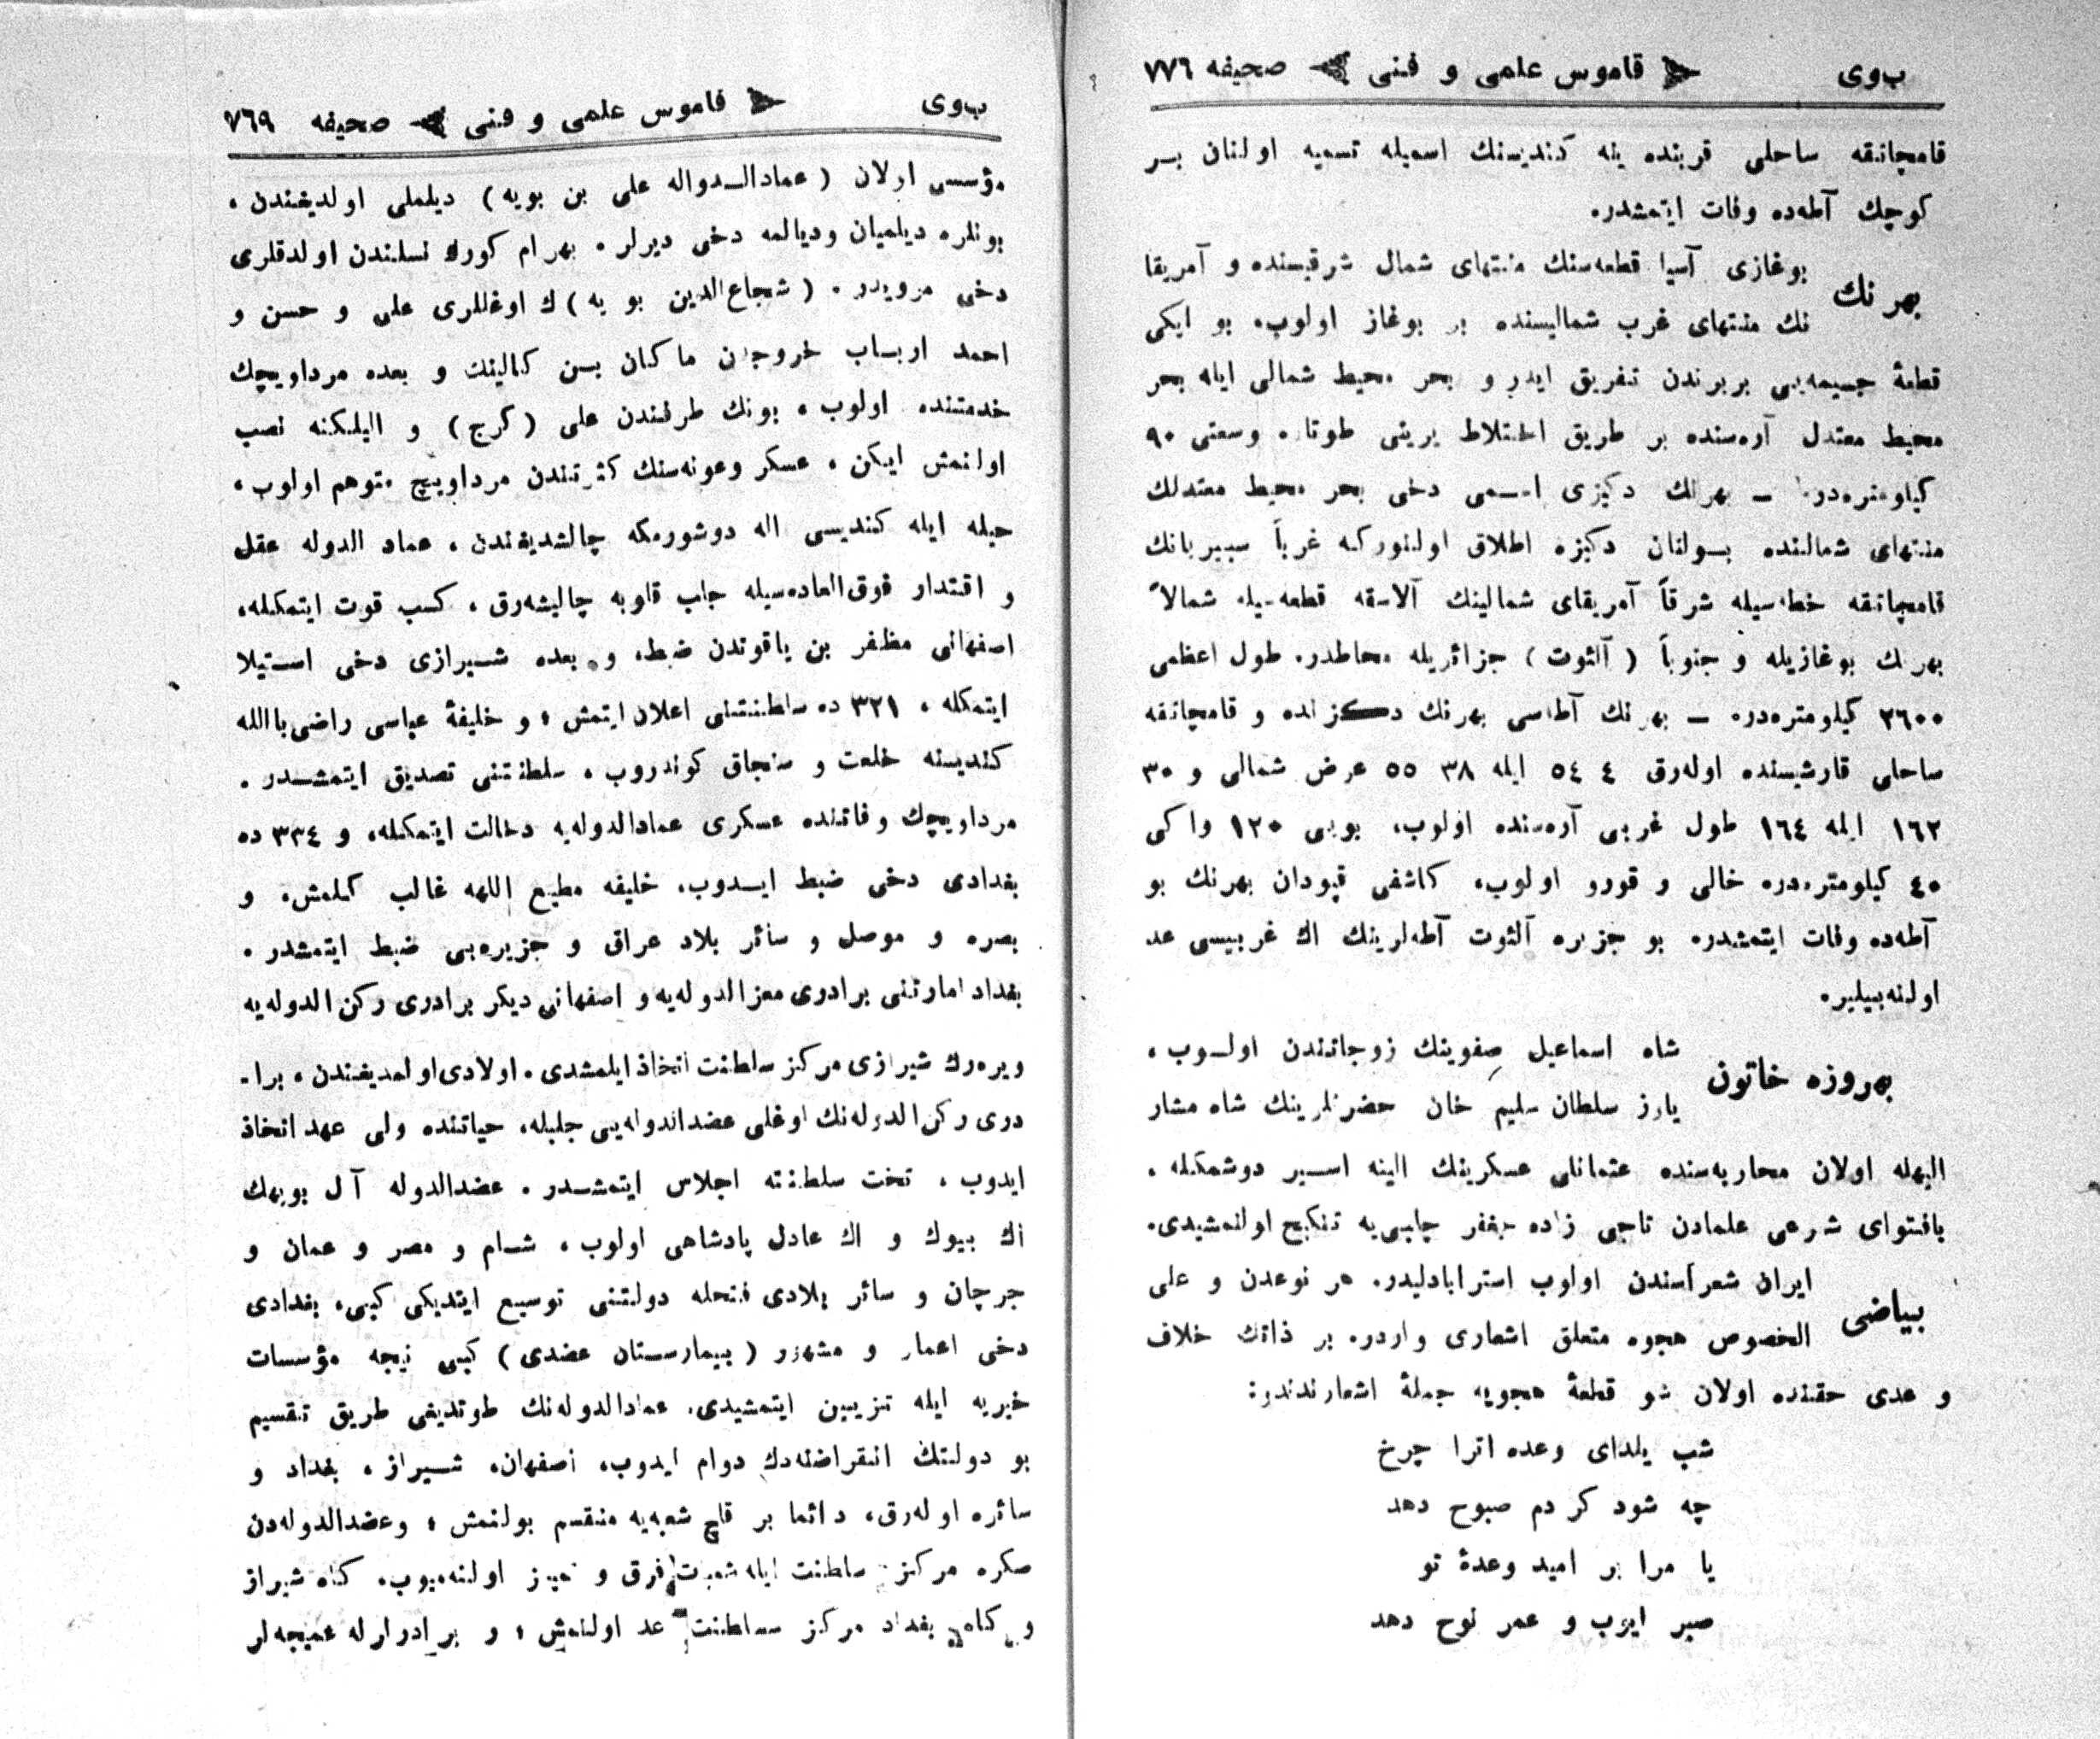 ب‌وی قاموس علمی و فنی صحیفه ٧٧٦
قامچاتقه ساحلی قربنده ینه كندیسنك اسمیله تسمیه اولنان بــر
كوچك آطه‌ده وفات ایتمشدر.
بهرنك
بوغازی آسیا قطعه‌سنك منتهای شمال شرقیسنده و آمریقا
نك منتهای غرب شمالیسنده بر بوغاز اولوب، بو ایكی
قطعهٔ جسیمه‌یی بربرندن تفریق ایدر و بحر محیط شمالی ایله بحر
محیط معتدل آره‌سنده بر طریق اختلاط یرینی طوتار. وسعتی ٩٠
كیلومتره‌در. ـ بهرنك دكیزی اسمی دخی بحر محیط معتدلك
منتهای شمالنده بــولنان دكیزه اطلاق اولنوركه غرباً سیبریانك
قامچاتقه خطه‌سیله شرقاً آمریقای شمالینك آلاسقه قطعه‌سیله شمالاً
بهرنك بوغازیله و جنوباً ( آلئوت ) جزائریله محاطدر. طول اعظمی
٢٦٠٠ كیلومتره‌در. ـ بهرنك آطه‌سی بهرنك دكزنده و قامچاتقه
ساحلی قارشیسنده اوله‌رق ٤ ٥٤ ایله ٣٨ ٥٥ عرض شمالی و ٣٠
١٦٢ ایله ١٦٤ طول غربی آره‌سنده اولوب، بویی ١٢٠ و اكی
٤٠ كیلومتره‌در. خالی و قورو اولوب، كاشفی قپودان بهرنك بو
آطه‌ده وفات ایتمشدر. بو جزیره آلئوت آطه‌لرینك اك غربیسی عد
اولنه‌بیلیر.
بهروزه خاتون
شاه اسماعیل صفوینك زوجاتندن اولــوب ،
یاوز سلطان سلیم خان حضرتلرینك شاه مشار
الیهله اولان محاربه‌سنده عثمانلی عسكرینك الینه اســیر دوشمكله ،
بافتوای شرعی علمادن تاجی زاده جعفر چلبی‌یه تنكیح اولنمشیدی.
بیاضی
ایران شعراسندن اولوب استرابادلیدر. هر نوعدن و علی
الخصوص هجوه متعلق اشعاری واردر. بر ذاتك خلاف
و عدی حقنده اولان شو قطعهٔ هجویه جملهٔ اشعارندندر:
شب یلدای وعده اترا چرخ
چه شود كر دم صبوح دهد
یا مرا بر امید وعدهٔ تو
صبر ایوب و عمر نوح دهد
ب‌وی قاموس علمی و فنی صحیفه ٧٦٩
مؤسسی اولان ( عمادالــدواله علی بن بویه ) دیلملی اولدیغندن ،
بونلره دیلمیان ودیالمه دخی دیرلر . بهرام كورك نسلندن اولدقلری
دخی مرویدر . ( شجاع‌الدین بو یه ) ك اوغللری علی و حسن و
احمد اربــاب خروجدن ماكان بــن كالینك و بعده مرداویچك
خدمتنده اولوب ، بونك طرفندن علی ( كرج ) و الیلكنه نصب
اولنمش ایكن ، عسكر وعونه‌سنك كثرتندن مرداویچ متوهم اولوب ،
حیله ایله كندیسی اله دوشورمكه چالشدیغندن ، عماد الدوله عقل
و اقتدار فوق‌العاده‌سیله جلب قلوبه چالیشه‌رق ، كسب قوت ایتمكله،
اصفهانی مظفر بن یاقوتدن ضبط، و بعده شــیرازی دخی استیلا
ایتمكله ، ٣٢١ ده سلطنتنی اعلان ایتمش ؛ و خلیفهٔ عباسی راضی‌بالله
كندیسنه خلعت و سنجاق كوندروب ، سلطنتنی تصدیق ایتمشــدر .
مرداویچك وفاتنده عسكری عمادالدوله‌یه دخالت ایتمكله، و ٣٣٤ ده
بغدادی دخی ضبط ایــدوب، خلیفه مطیع اللهه غالب كلمش، و
بصره و موصل و سائر بلاد عراق و جزیره‌یی ضبط ایتمشدر .
بغداد امارتنی برادری معزالدوله‌یه و اصفهانی دیكر برادری ركن الدوله‌یه
ویره‌رك شیرازی مركز سلطنت اتخاذ ایلمشدی . اولادی اولمدیغندن ، برا-
دری ركن‌الدوله‌نك اوغلی عضدالدوله‌یی جلبله، حیاتنده ولی عهد اتخاذ
ایدوب ، تخت سلطنته اجلاس ایتمشــدر . عضدالدوله آل بویه‌نك
اك بیوك و اك عادل پادشاهی اولوب ، شــام و مصر و عمان و
جرجان و سائر بلادی فتحله دولتنی توسیع ایتدیكی كبی، بغدادی
دخی اعمار و مشهور ( بیمارســتان عضدی ) كبی نیجه مؤسسات
خیریه ایله تزیین ایتمشیدی. عمادالدوله‌نك طوتدیغی طریق تقسیم
بو دولتك انقراضنه‌دك دوام ایدوب، اصفهان، شــیراز ، بغداد و
سائره اوله‌رق، دائما بر قاچ شعبه‌یه منقسم بولنمش ؛ وعضدالدوله‌دن
صكره مركز سلطنت ایله شعبات فرق و تمییز اولنه‌میوب، كاه شیراز
و كاه بغداد مركز سلطنت عد اولنمش ؛ و برادرلرله عمیجه‌لر